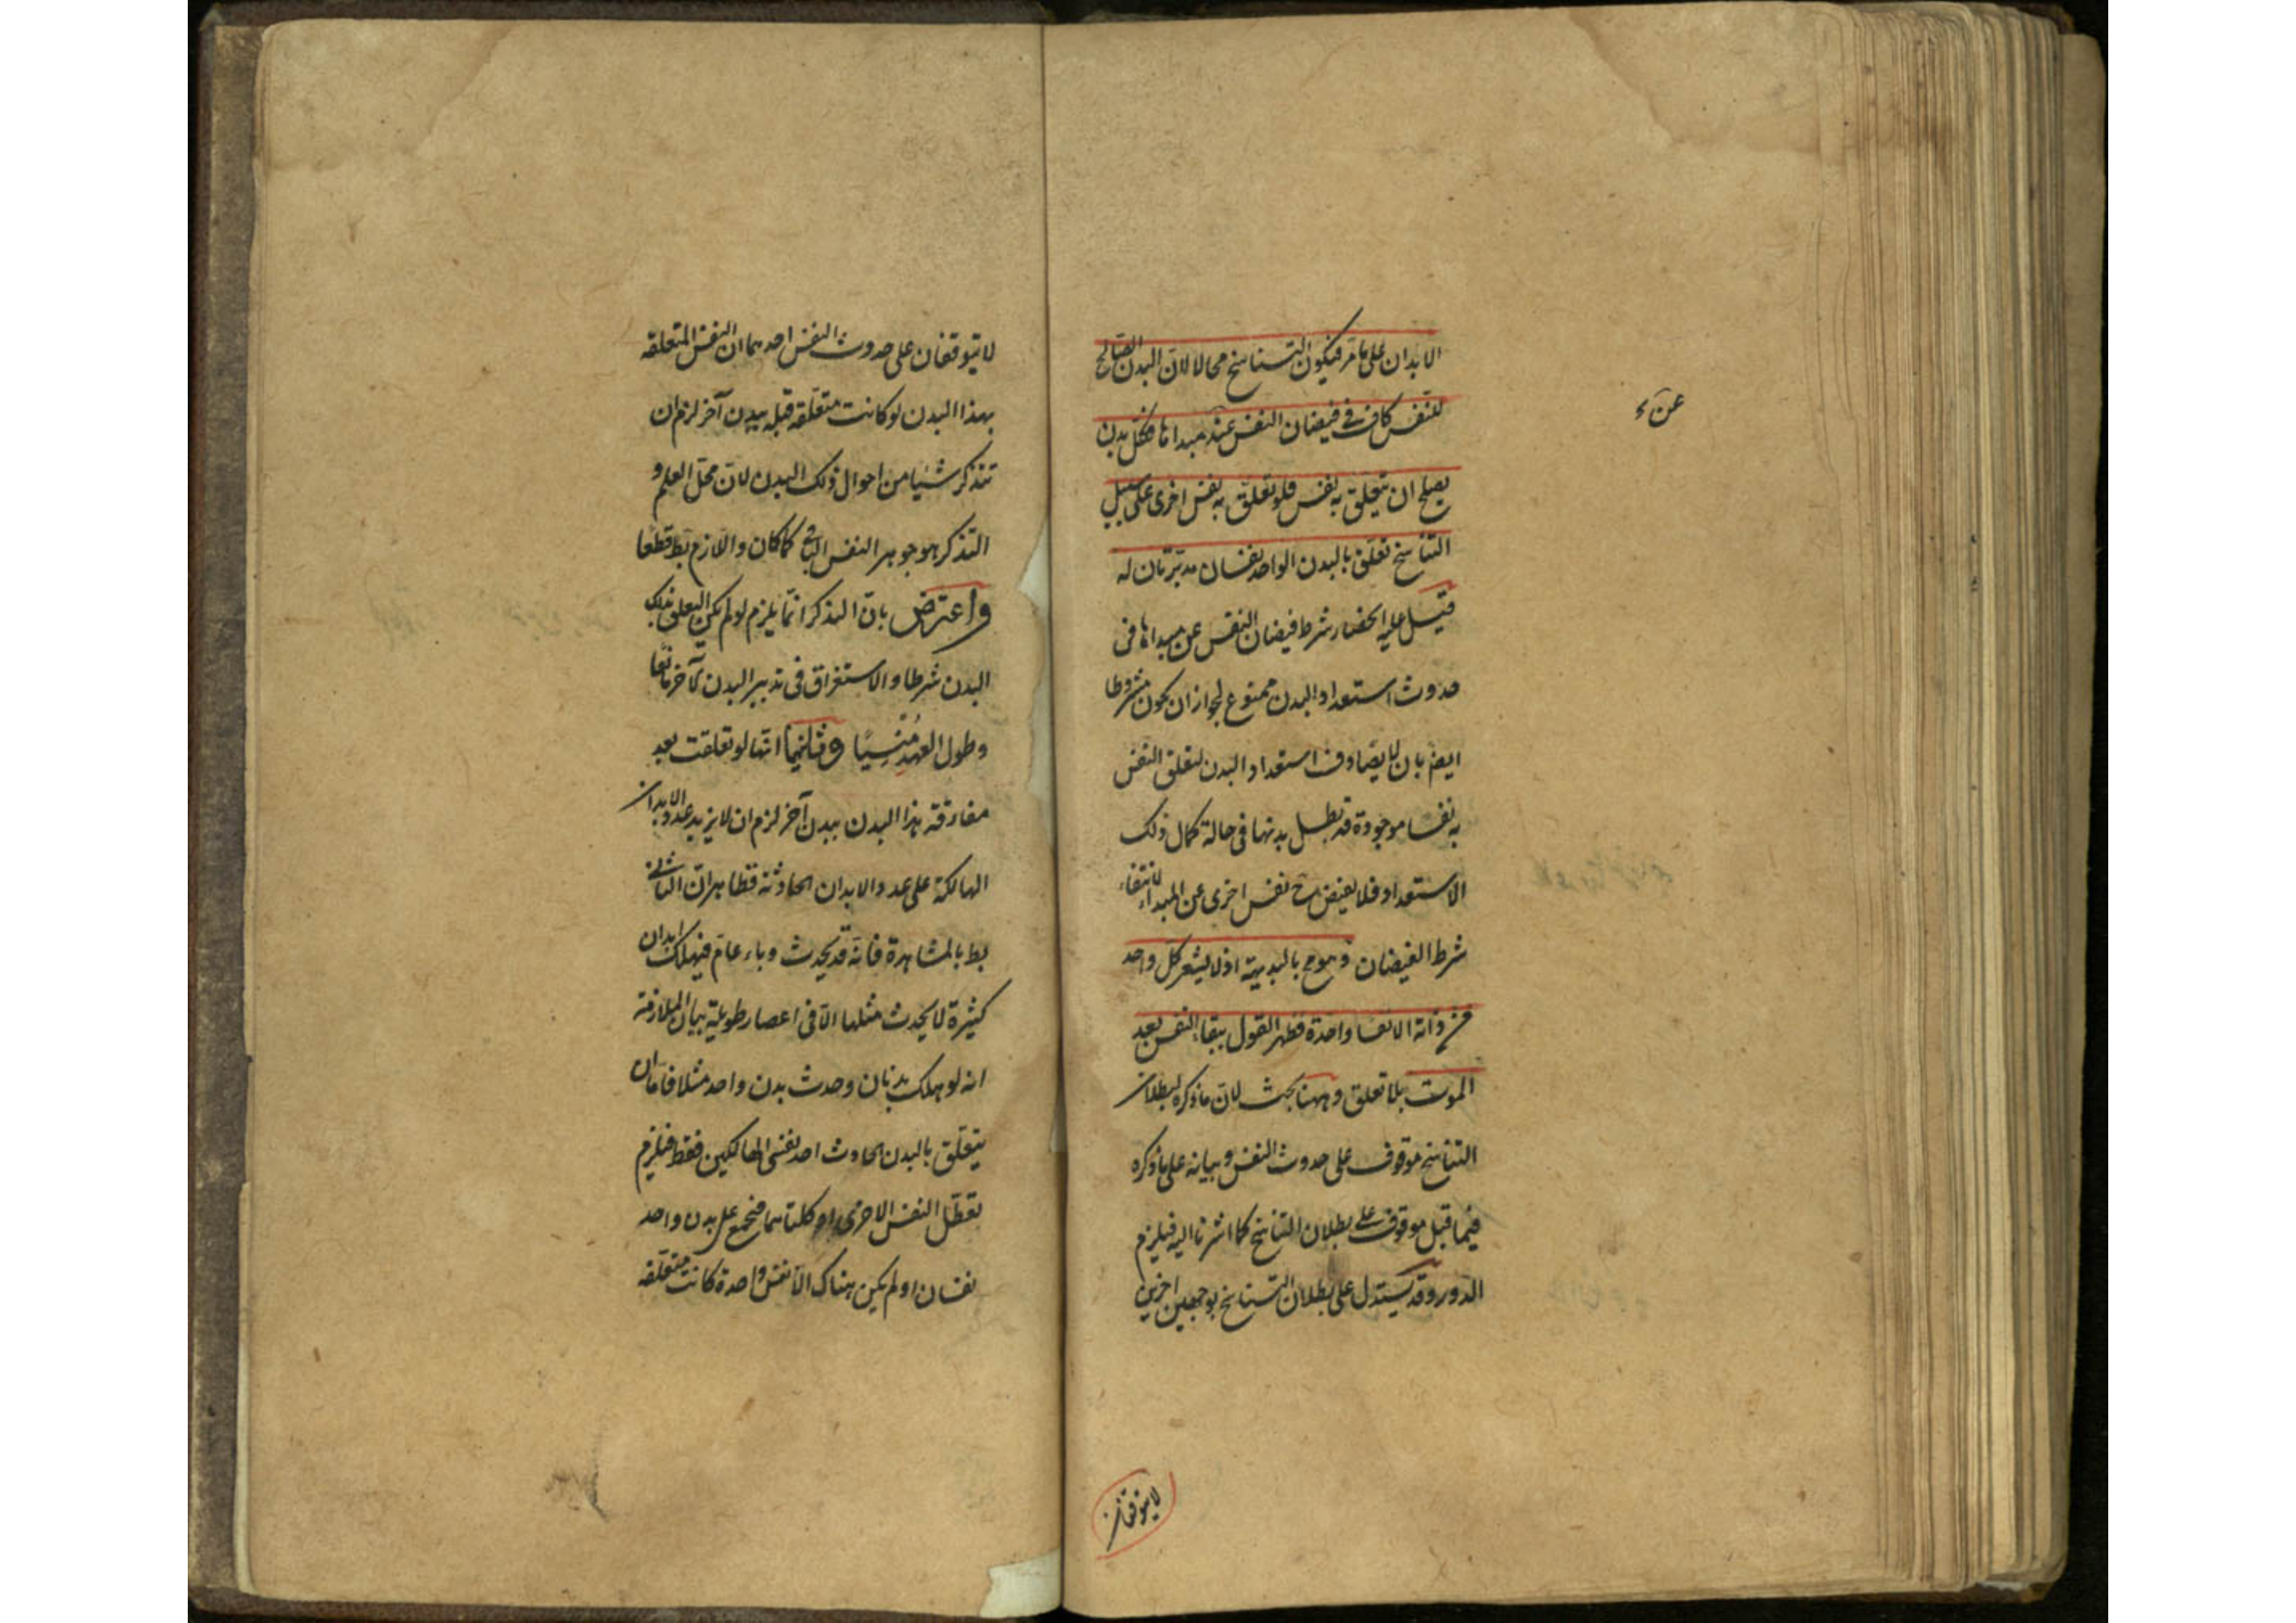 الابدان على ما مر فيكون التناسخ محالا لان البدن الصالح
للنفس كاف في فيضان النفس عند مبدأها فكل بدن
عن ء
يصلح ان يتعلق به نفس فلو تعلق به نفس اخرى على سبيل
التناسخ تعلق بالبدن الواحد نفسان مدبرتان له
قيل عليه انحصار شرط فيضان النفس عن مبدأها في
حدوث استعداد البدن ممنوع لجواز ان يكون مشروطا
ايضا بان لا يصادف استعداد البدن لتعلق النفس
به نفسا موجودة قد بطل بدنها في حالة كمال ذلك
الاستعداد فلا يفيض ح نفس اخرى عن المبدأ لانتفاء
شرط الفيضان وهو مح بالبديهة اذ لا يشعر كل واحد
من ذاته الا نفسا واحدة فظهر القول ببقاء النفس بعد
الموت بلا تعلق وههنا بحث لان ما ذكره لبطلان
التناسخ موقوف على حدوث النفس وبيانه على ما ذكره
فيما قبل موقوف على بطلان التناسخ كما اشرنا اليه فيلزم
الدور وقد يستدل على بطلان التناسخ بوجهين اخرين
لا يتوقفان
لا يتوقفان على حدوث النفس احدهما ان النفس المتعلقة
بهذا البدن لو كانت متعلقة قبله ببدن آخر لزم ان
تتذكر شيئا من احوال ذلك البدن لان محل العلم و
التذكر هو جوهر النفس الباقي كما كان واللازم بط قطعا
واعترض بان التذكر انما يلزم لو لم يكن التعلق بذلك
البدن شرطا والاستغراق في تدبير البدن الآخر مانعا
وطول العهد مُنْسِيًا وثانيها انها لو تعلقت بعد
مفارقة هذا البدن ببدن آخر لزم ان لا يزيد عدد الابدان
الهالكة على عدد الابدان الحادثة فظاهر ان الثاني
بط بالمشاهدة فانه قد يحدث وباء عام فيهلك ابدان
كثيرة لا يحدث مثلها الا في اعصار طويلة بيان الملازمة
انه لو هلك بدنان وحدث بدن واحد مثلا فاما ان
يتعلق بالبدن الحادث احد نفسي الهالكين فقط فيلزم
تعطل النفس الاخرى او كلتاهما فتجمع على بدن واحد
نفسان او لم يكن هناك الا نفس واحدة كانت متعلقة